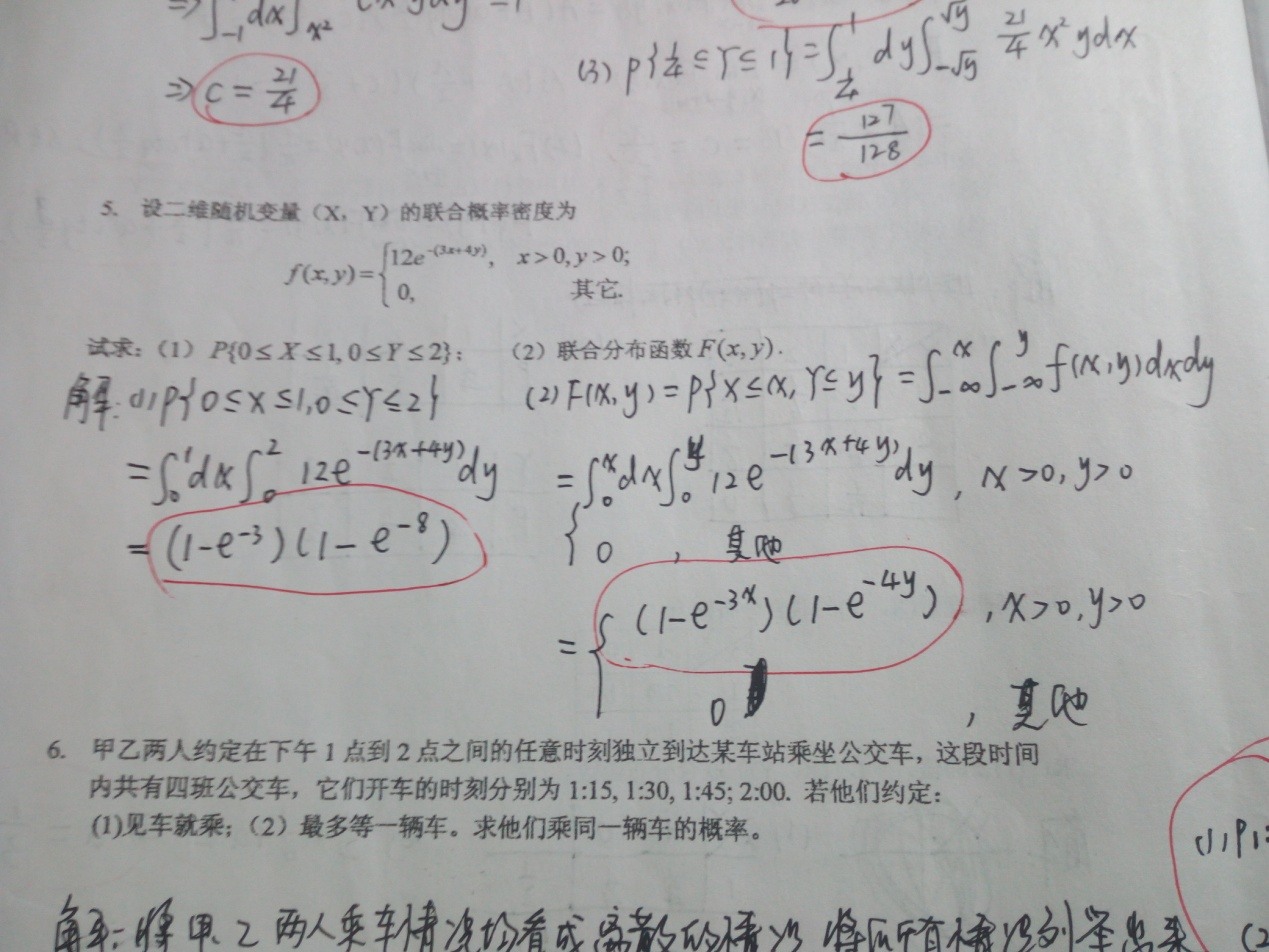 ⇒∫_{-1} dx∫_{x²}
⇒ c = 21/4
(3) P{1/4 ≤ Y ≤ 1} = ∫_{1/4}^{1} dy∫_{-√y}^{√y} 21/4 x² y dx
= 127/128
5. 设二维随机变量（X，Y）的联合概率密度为
f(x,y)={12e^{-(3x+4y)}, x>0,y>0;
0, 其它.
试求：（1）P{0≤X≤1,0≤Y≤2}； （2）联合分布函数 F(x,y).
解: (1) P{0≤X≤1,0≤Y≤2}
=∫_0^1 dx∫_0^2 12e^{-(3x+4y)}dy
= (1-e^{-3})(1-e^{-8})
(2) F(x,y) = P{X≤x, Y≤y} = ∫_{-∞}^{x}∫_{-∞}^{y} f(x,y)dxdy
=∫_0^x dx∫_0^y 12e^{-(3x+4y)}dy , x>0,y>0
{ 0 , 其他
={ (1-e^{-3x})(1-e^{-4y}) , x>0,y>0
0 , 其他
6. 甲乙两人约定在下午 1 点到 2 点之间的任意时刻独立到达某车站乘坐公交车，这段时间
内共有四班公交车，它们开车的时刻分别为 1:15, 1:30, 1:45; 2:00. 若他们约定：
(1)见车就乘；（2）最多等一辆车。求他们乘同一辆车的概率。
(1)P1:
解:将甲乙两人乘车情况均看成离散的情况